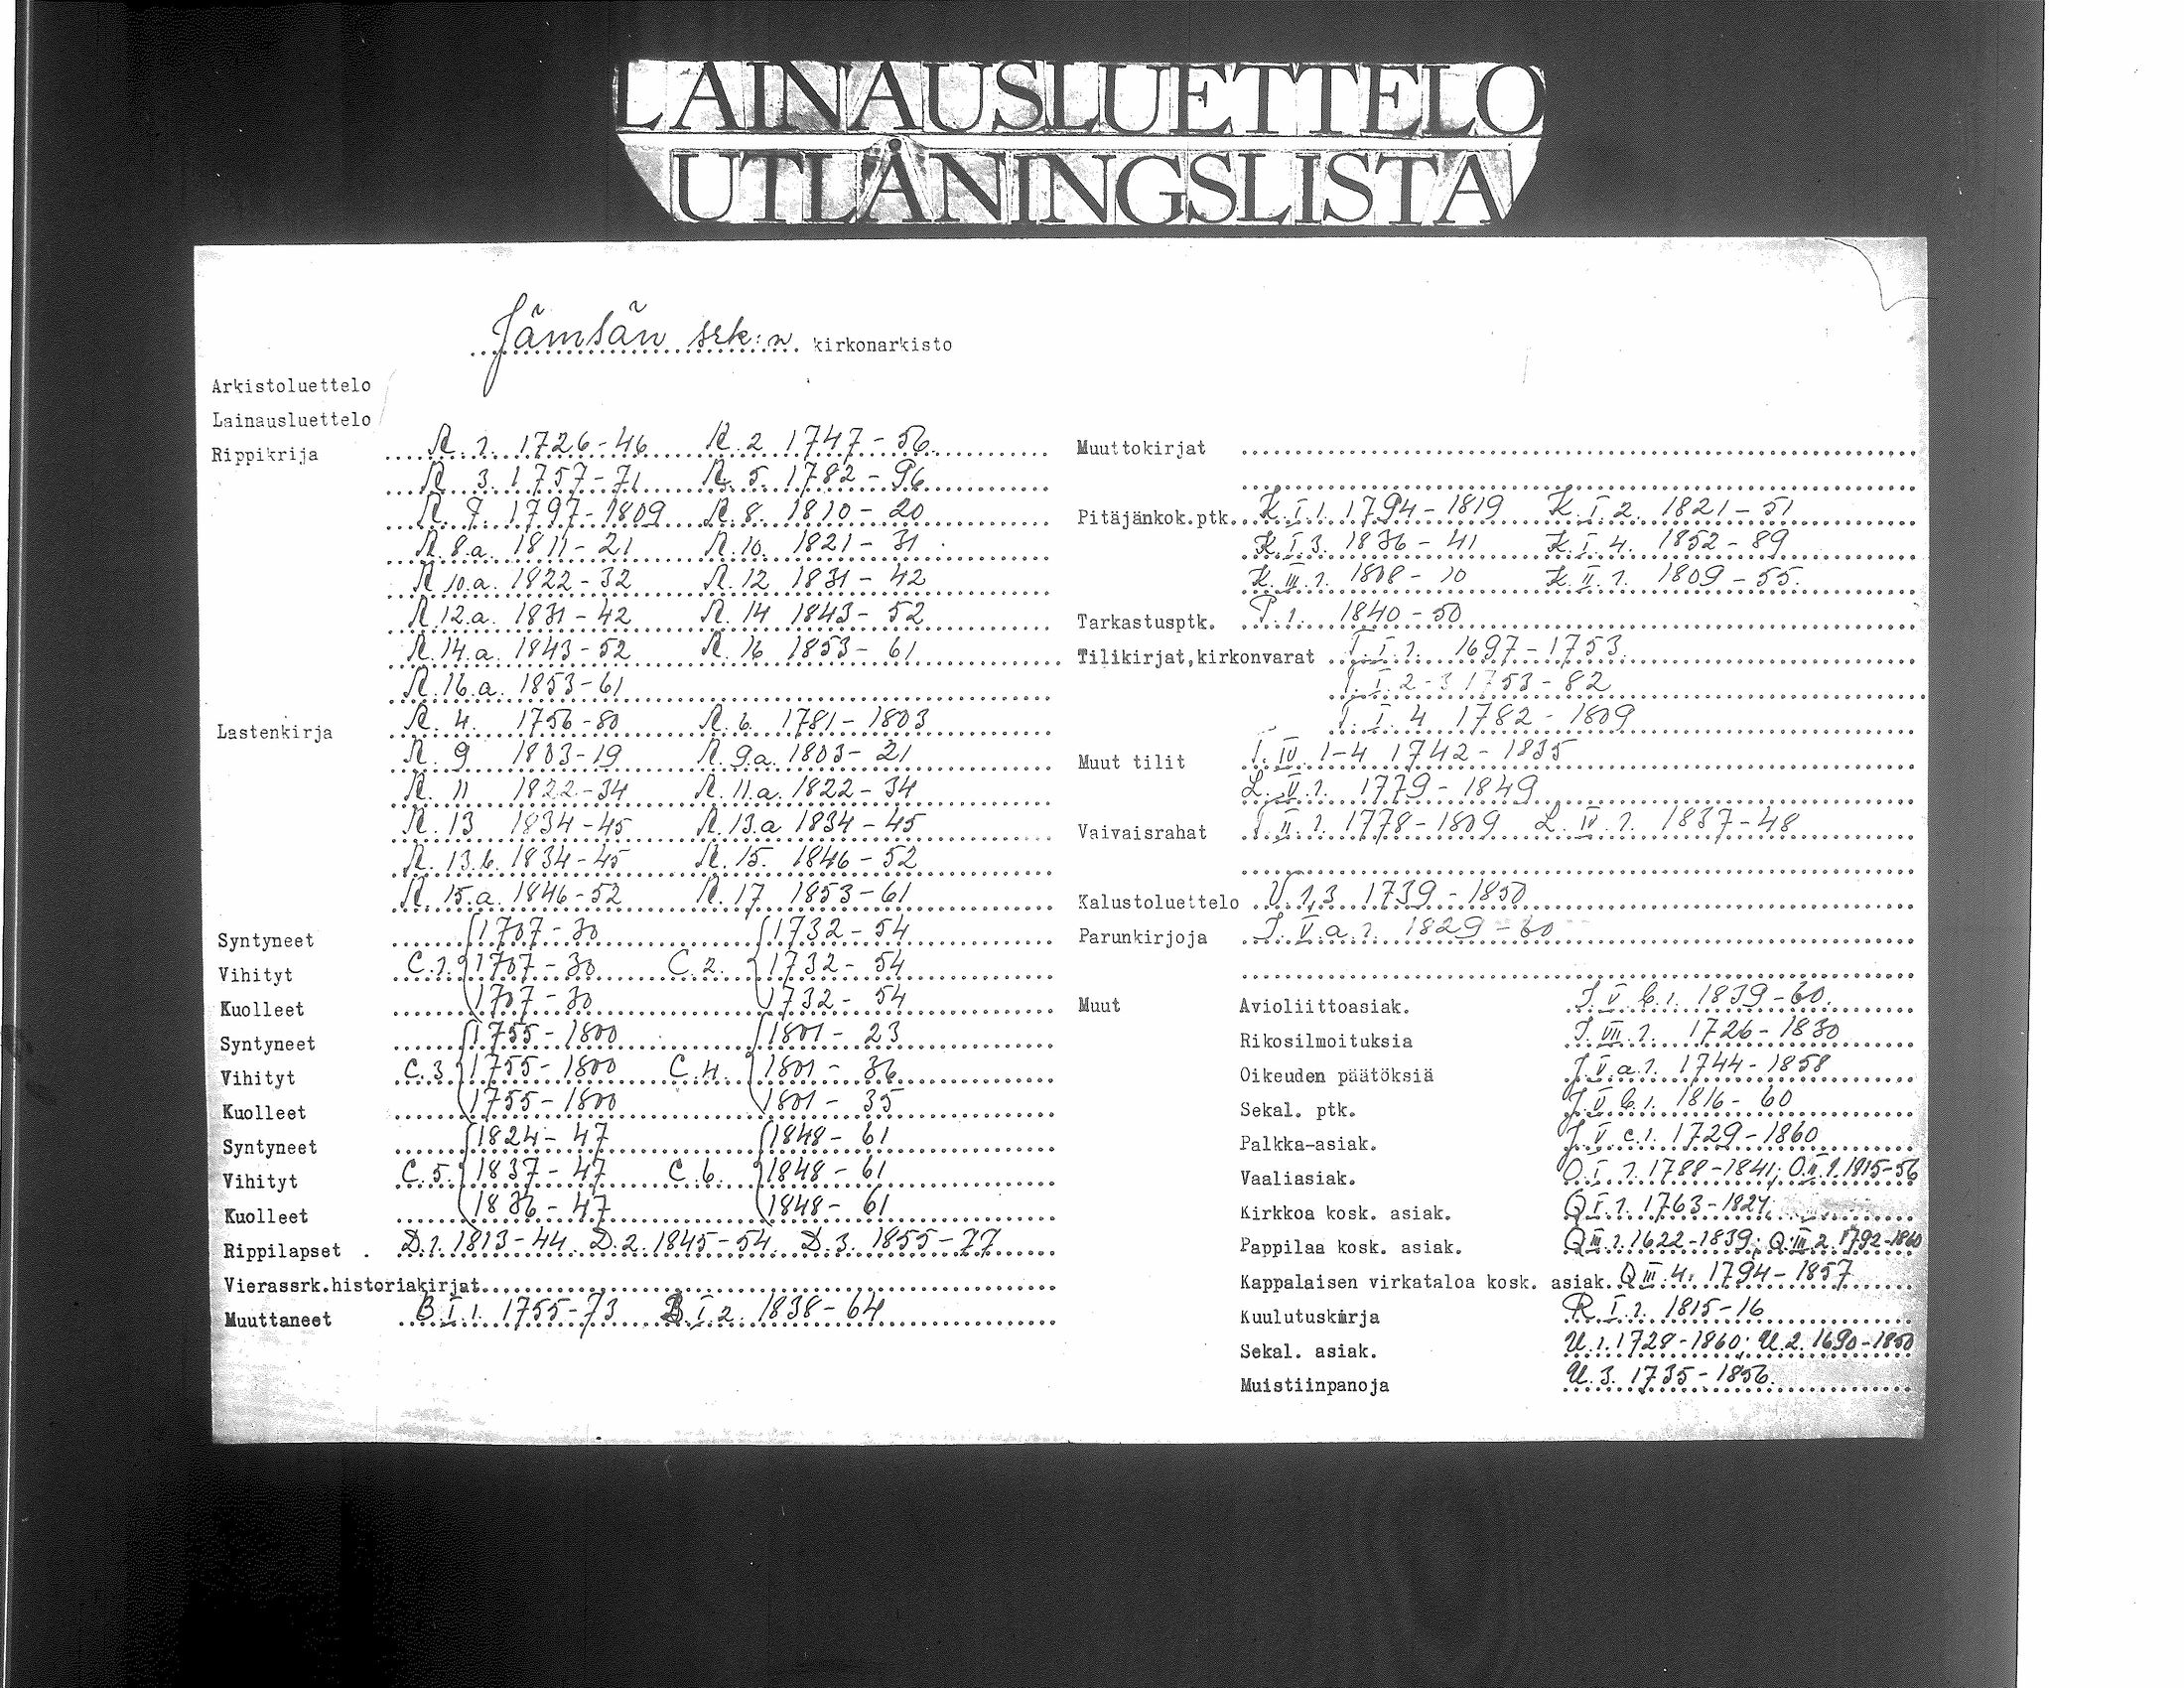 LAINAUSLUETTELO
UTLÅNINGSLISTA
Jämsän srk:n kirkonarkisto
Arkistoluettelo
Lainausluettelo
Rippikrija R.1. 1726-46 R.2 1747-56
R 3. 1757-71 R. 5. 1782-96
R. 7. 1797-1809 R.8. 1810-20
R.8.a. 1811-21 R.10. 1821-31
R 10.a. 1822-32 R.12 1831-42
R.12.a. 1831-42 R.14 1843-52
R.14.a. 1843-52 R.16 1853-61
R.16.a. 1853-61
Lastenkirja R. 4. 1756-80 R.6. 1781-1803
R. 9 1803-19 R.9.a. 1803-21
R. 11 1822-34 R.11.a. 1822-34
R. 13 1834-45 R.13.a 1834-45
R. 13.b. 1834-45 R.15. 1846-52
R. 15.a. 1846-52 R.17 1853-61
Syntyneet 1707-30 1732-54
Vihityt C.1. 1707-30 C.2. 1732-54
Kuolleet 1707-30 1732-54
Syntyneet 1755-1800 1801-23
Vihityt C.3 1755-1800 C.4. 1801-36
Kuolleet 1755-1800 1801-35
Syntyneet 1824-47 1848-61
Vihityt C.5. 1837-47 C.6. 1848-61
Kuolleet 1836-47 1848-61
Rippilapset . D.1. 1813-44 D.2. 1845-54 D.3. 1855-77
Vierassrk.historiakirjat
Muuttaneet B.I.1. 1755-73 B.I.2. 1838-64
Muuttokirjat
Pitäjänkok.ptk. K.I.1. 1794-1819 K.I.2. 1821-51
K.I.3. 1836-41 K.I.4. 1852-89
K.III.1. 1808-10 K.II.1. 1809-55.
Tarkastusptk. P.1. 1840-50
Tilikirjat,kirkonvarat T.I.1. 1697-1753
T.I.2-3 1753-82
T.I.4 1782-1809
Muut tilit T.IV.1-4 1742-1835
L.V.1. 1779-1849
Vaivaisrahat T.II.1. 1778-1809 L.IV.1. 1837-48
Kalustoluettelo U.1,3. 1739-1850
Parunkirjoja J.V.a.1. 1829-60
Muut Avioliittoasiak. J.V.b.1. 1839-60.
Rikosilmoituksia J.VII.1. 1726-1830
Oikeuden päätöksiä J.V.a.1. 1744-1858
Sekal. ptk. 1816-60
Palkka-asiak. J.V.c.1. 1729-1860
Vaaliasiak. O.I.1. 1788-1841; O.II.1. 1815-56
Kirkkoa kosk. asiak. Q I.1. 1763-1827;
Pappilaa kosk. asiak. Q III.1. 1622-1839; Q.III.2. 1792-1860
Kappalaisen virkataloa kosk. asiak. Q III.4. 1794-1857
Kuulutuskirja R.I.1. 1815-16
Sekal. asiak. U.1. 1728-1860; U.2. 1690-1850
Muistiinpanoja U.3. 1735-1856.